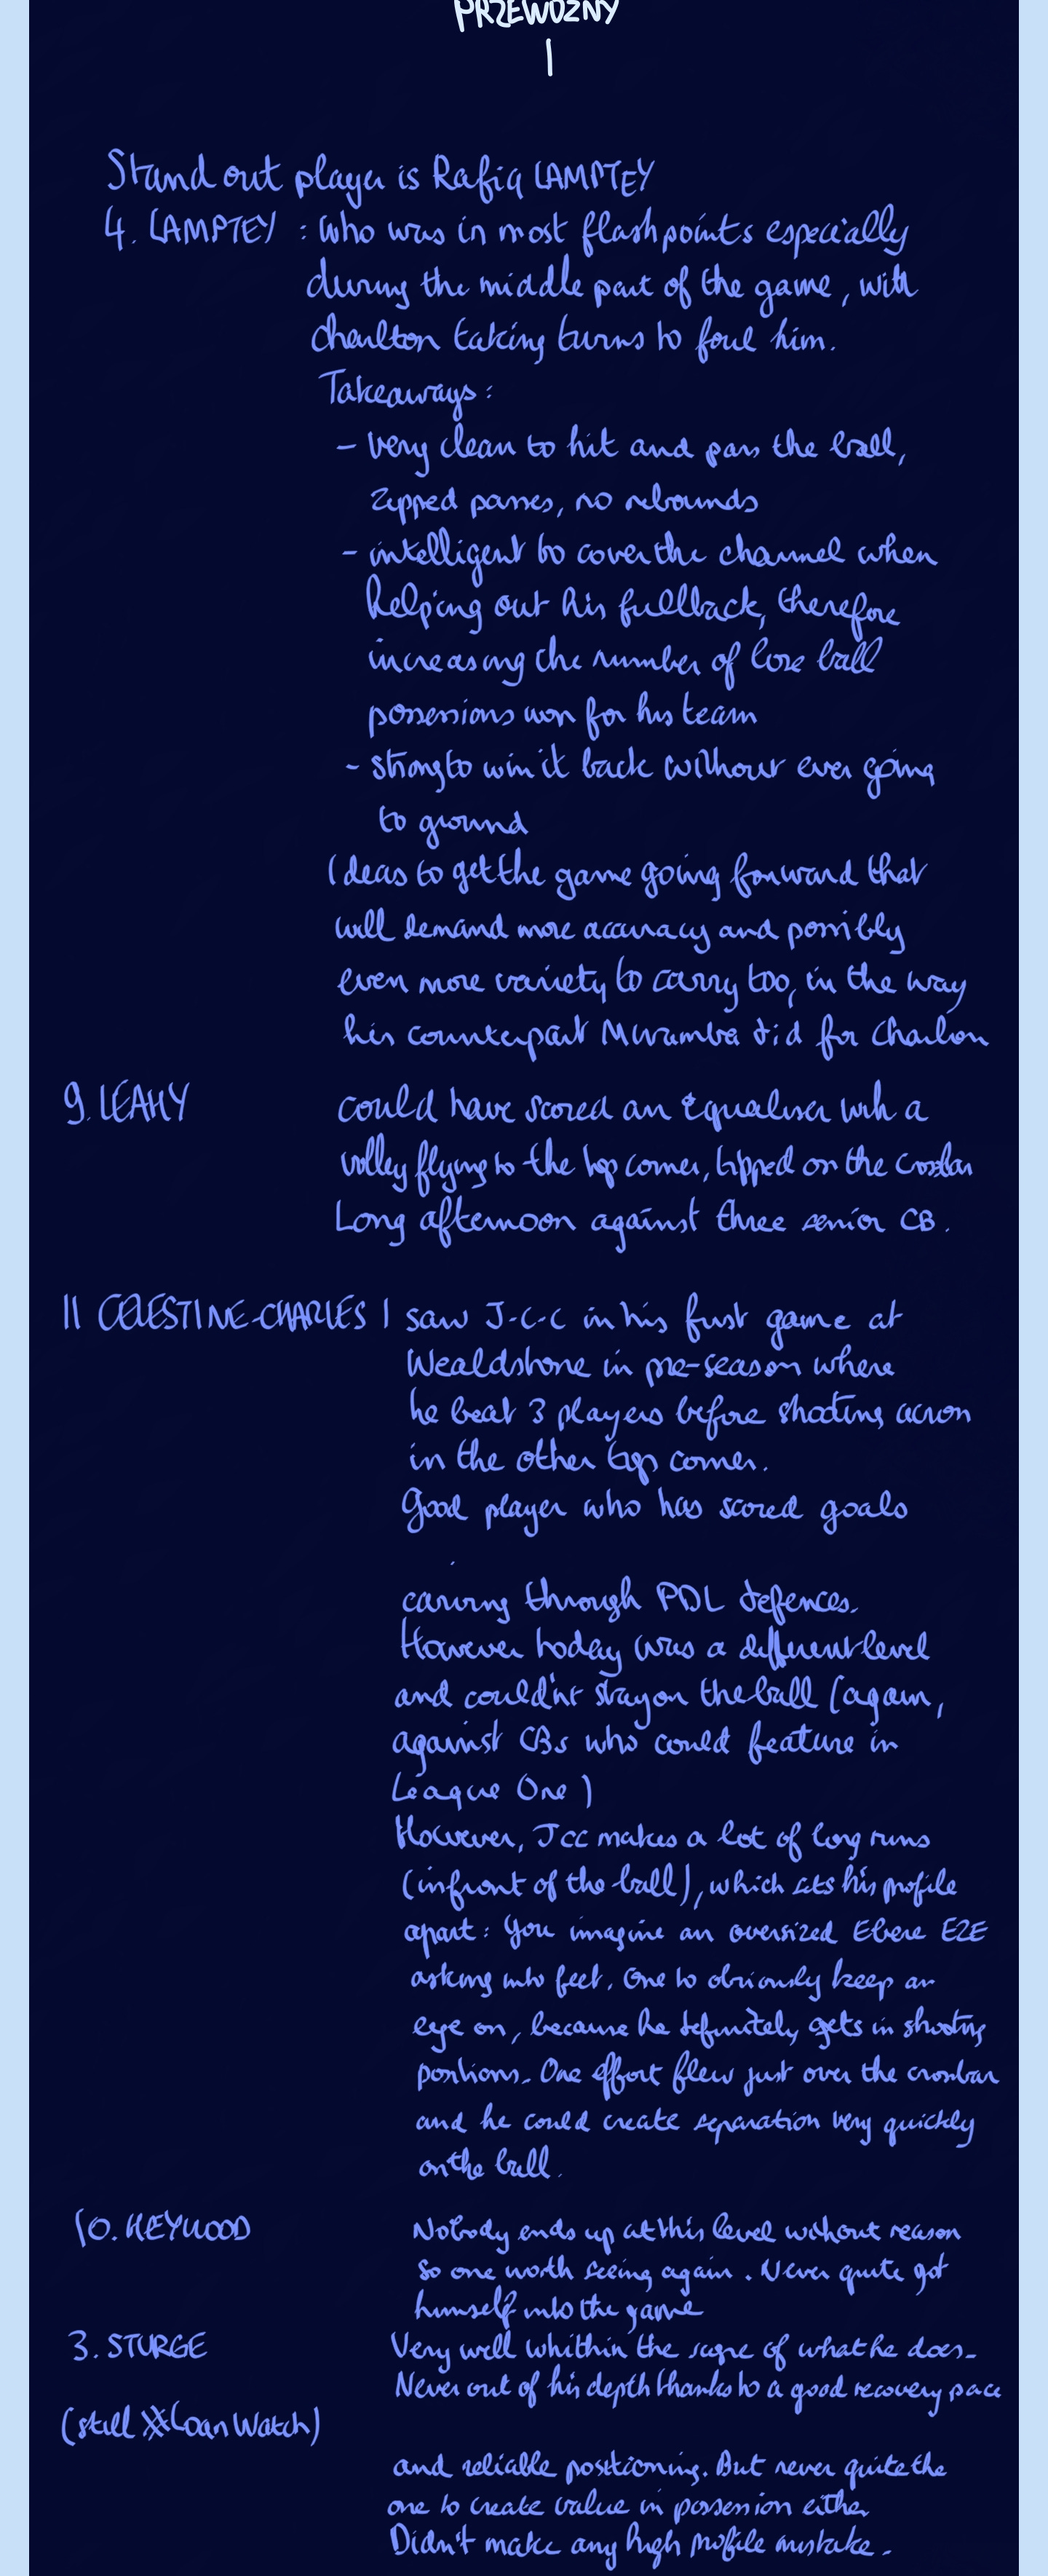 PRZEWOZNY
Stand out player is Rafiq LAMPTEY
4. LAMPTEY : Who was in most flashpoints especially
during the middle part of the game, with
charlton taking turns to foul him.
Takeaways :
- very clean to hit and pass the ball,
zipped passes, no rebounds
- intelligent to cover the channel when
helping out his fullback, therefore
increasing the number of lose ball
possessions won for his team
- strong to win it back without ever going
to ground
Ideas to get the game going forward that
will demand more accuracy and possibly
even more variety to carry too, in the way
his counterpart Mwamba did for Charlton
9. LEAHY could have scored an equaliser with a
volley flying to the top corner, tipped on the crossbar
Long afternoon against three senior CB.
11 CELESTINE-CHARLES I saw J-C-C in his first game at
Wealdstone in pre-season where
he beat 3 players before shooting across
in the other top corner.
Good player who has scored goals
carving through PDL defences.
However today was a different level
and could'nt stay on the ball (again,
against CBs who could feature in
League One)
However, JCC makes a lot of long runs
(infront of the ball), which sets his profile
apart : you imagine an oversized Ebere EZE
asking into feet. One to obviously keep an
eye on, because he definitely gets in shooting
positions. One effort flew just over the crossbar
and he could create separation very quickly
on the ball.
10. HEYWOOD Nobody ends up at this level without reason
so one worth seeing again. Never quite got
himself into the game
3. STURGE Very well whithin the scope of what he does.
Never out of his depth thanks to a good recovery pace
(still #LoanWatch)
and reliable positioning. But never quite the
one to create value in possession either
Didn't make any high profile mistake.